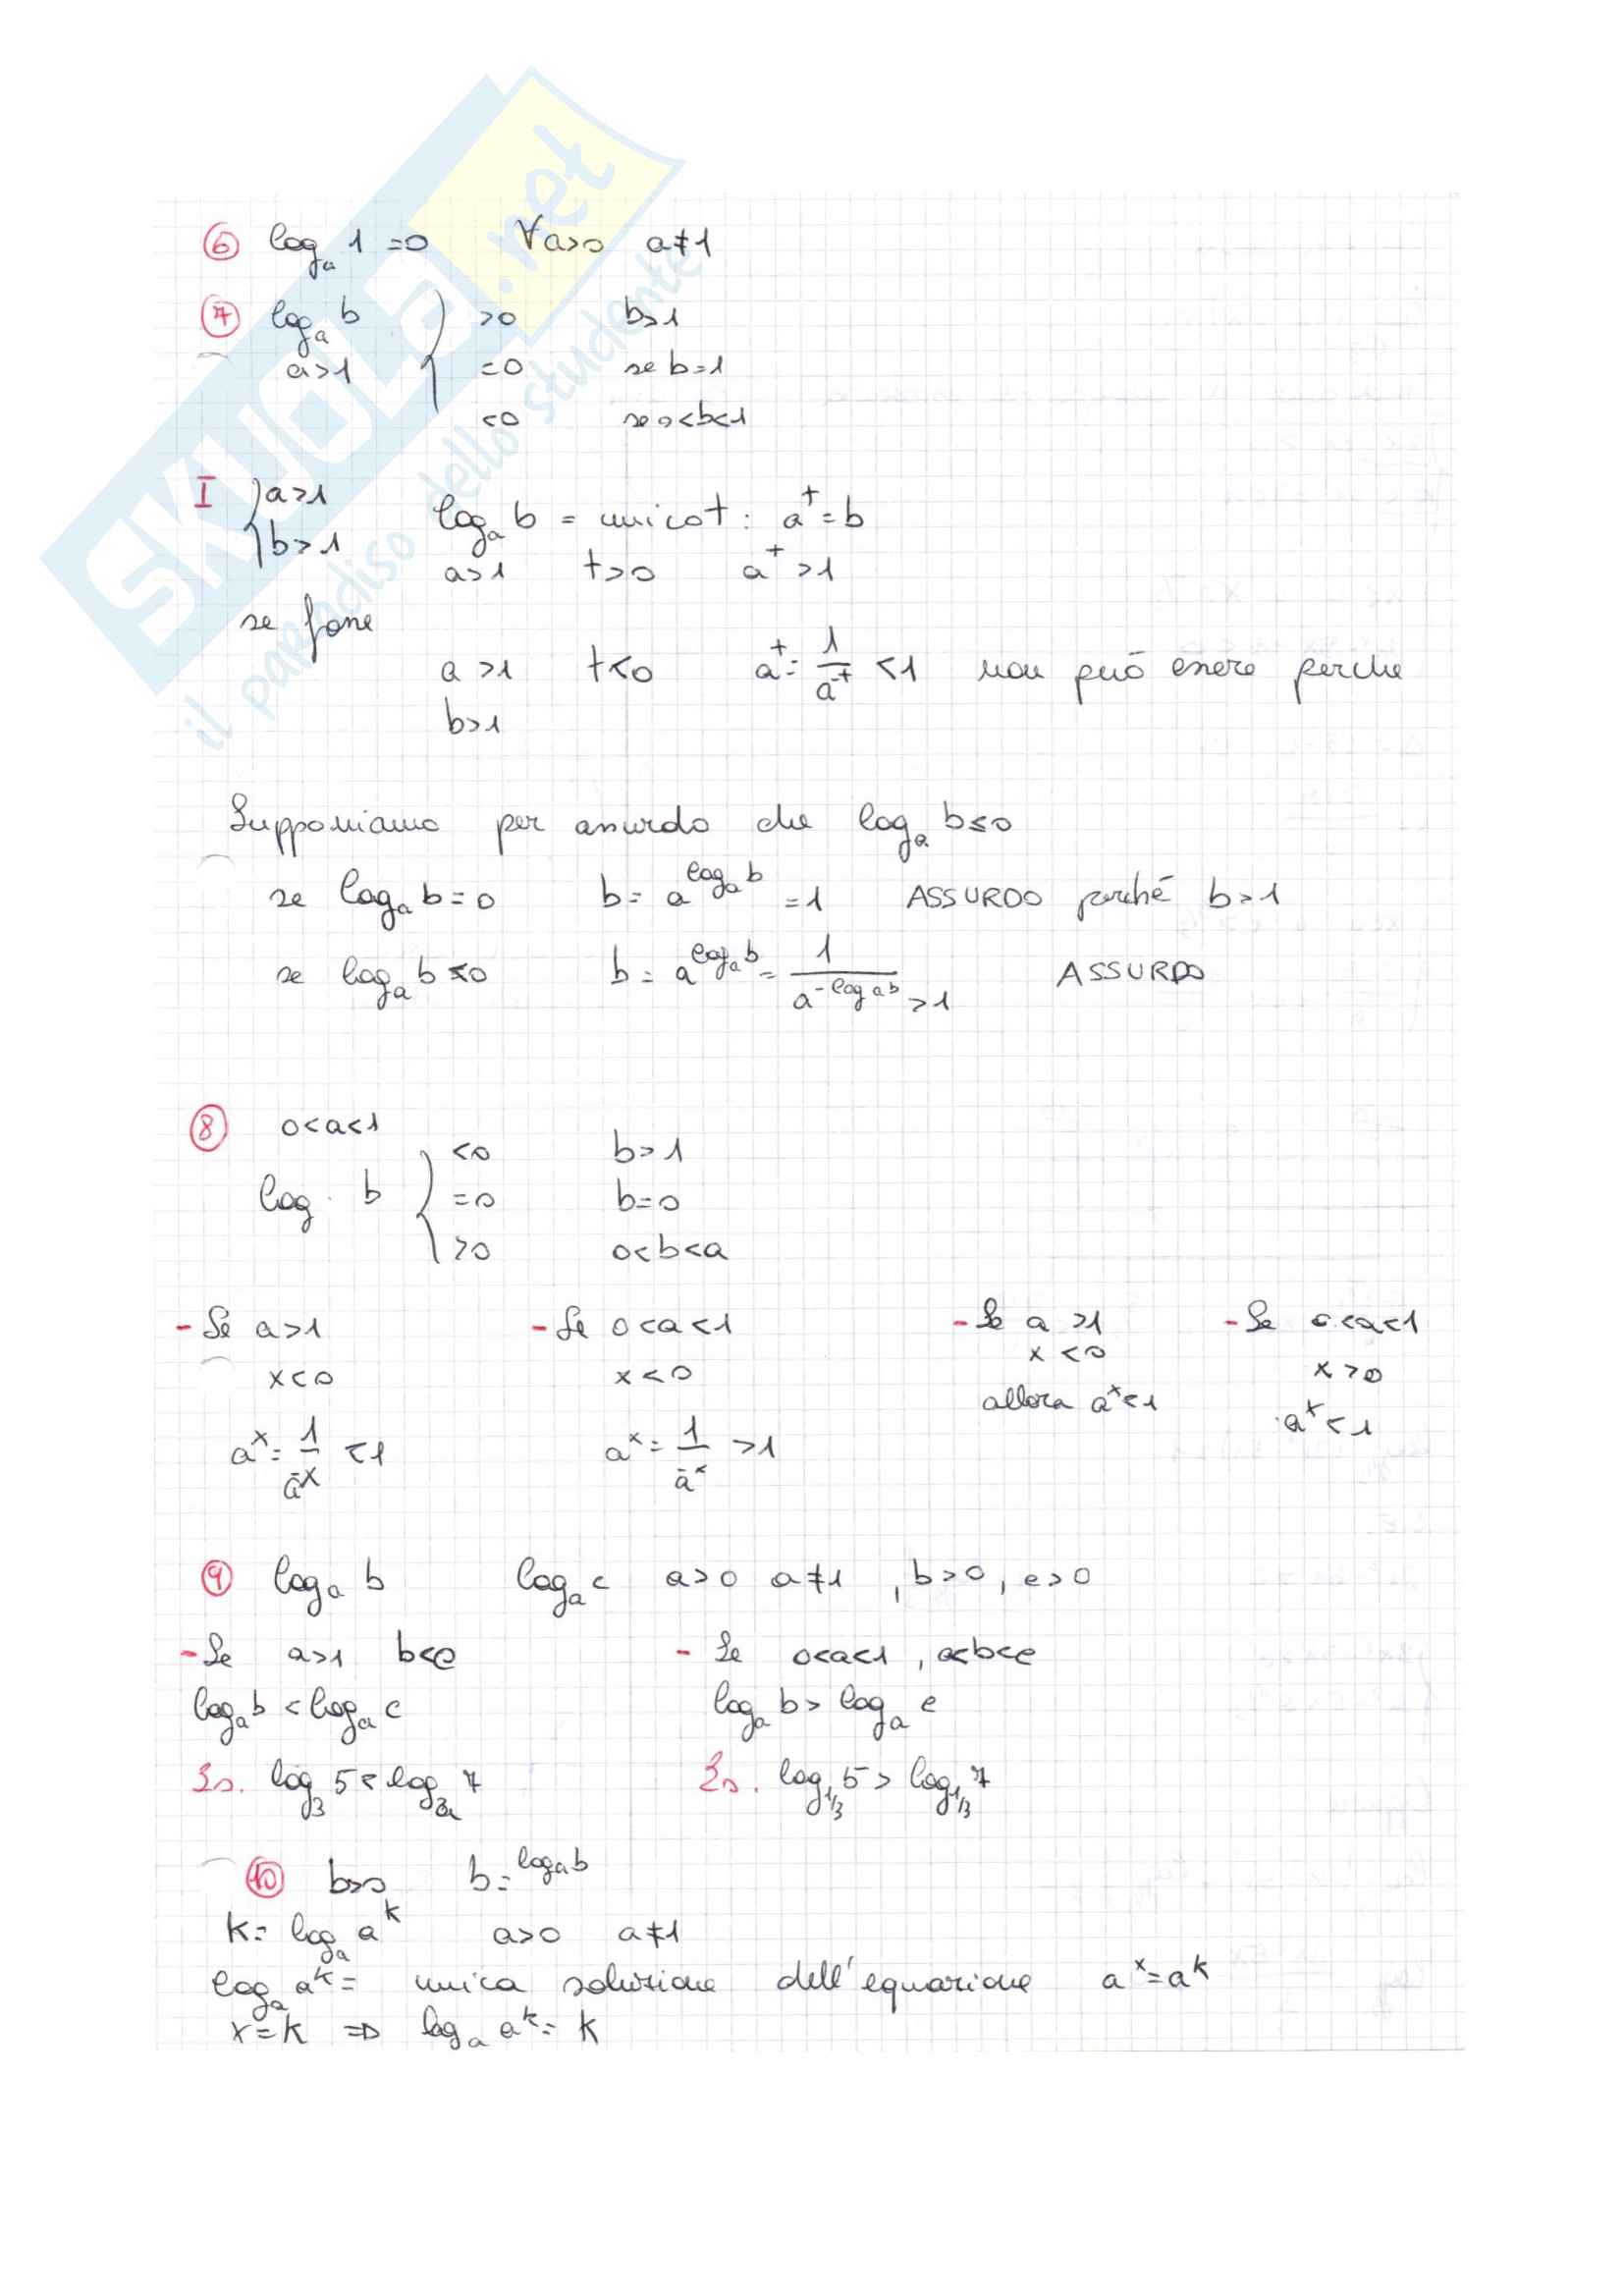 SKUOLA.net
il paradiso dello studente
⑥ log_a 1 =0 ∀a>0 a≠1
⑦ log_a b { >0 b>1
a>1 =0 se b=1
<0 se 0<b<1
I { a>1
b>1 log_a b = unico t : a^t = b
a>1 t>0 a^t >1
se fosse
a>1 t<0 a^t = 1/a^-t <1 non può essere perche
b>1
Supponiamo per assurdo che log_a b≤0
se log_a b=0 b= a^log_a b =1 ASSURDO perché b>1
se log_a b<0 b= a^log_a b = 1/a^-log a b >1 ASSURDO
⑧ 0<a<1
log b { <0 b>1
=0 b=0
>0 0<b<a
- Se a>1 - Se 0<a<1 - Se a >1 - Se 0<a<1
x<0 x<0 x<0 x>0
a^x = 1/a^-x <1 a^x = 1/a^-x >1 allora a^x<1 a^x<1
⑨ log_a b log_a c a>0 a≠1 , b>0, c>0
- Se a>1 b<c - Se 0<a<1 , 0<b<c
log_a b < log_a c log_a b > log_a c
Es. log_3 5 < log_3 7 Es. log_1/3 5 > log_1/3 7
⑩ b>0 b= log_a b
k= log_a a^k a>0 a≠1
log_a a^k = unica soluzione dell'equazione a^x = a^k
x=k ⇒ log_a a^k = k